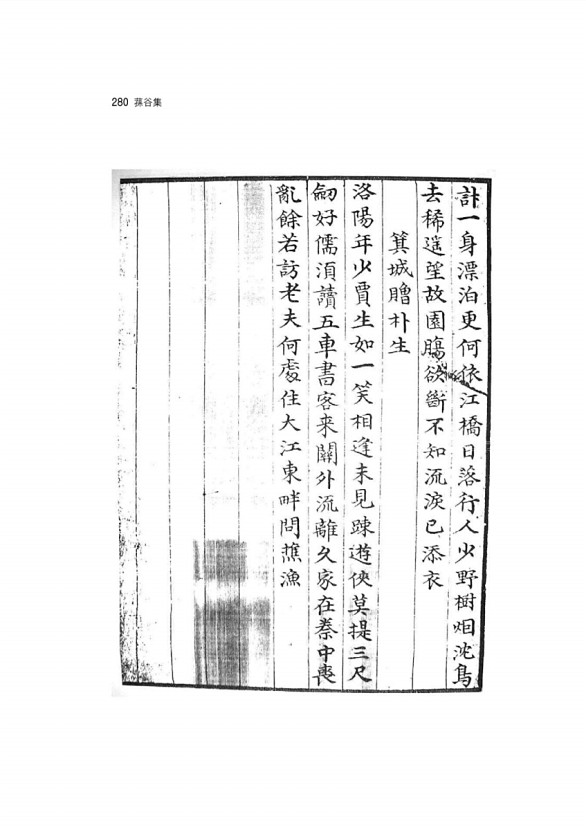 280 蓀谷集
計一身漂泊更何依江橋日落行人少野樹烟沈鳥
去稀遙望故園膓欲斷不知流淚已添衣
箕城贈朴生
洛陽年少賈生如一笑相逢未見踈遊俠莫提三尺
劒好儒須讀五車書客来關外流離久家在秦中喪
亂餘若訪老夫何處住大江東畔問蕉漁